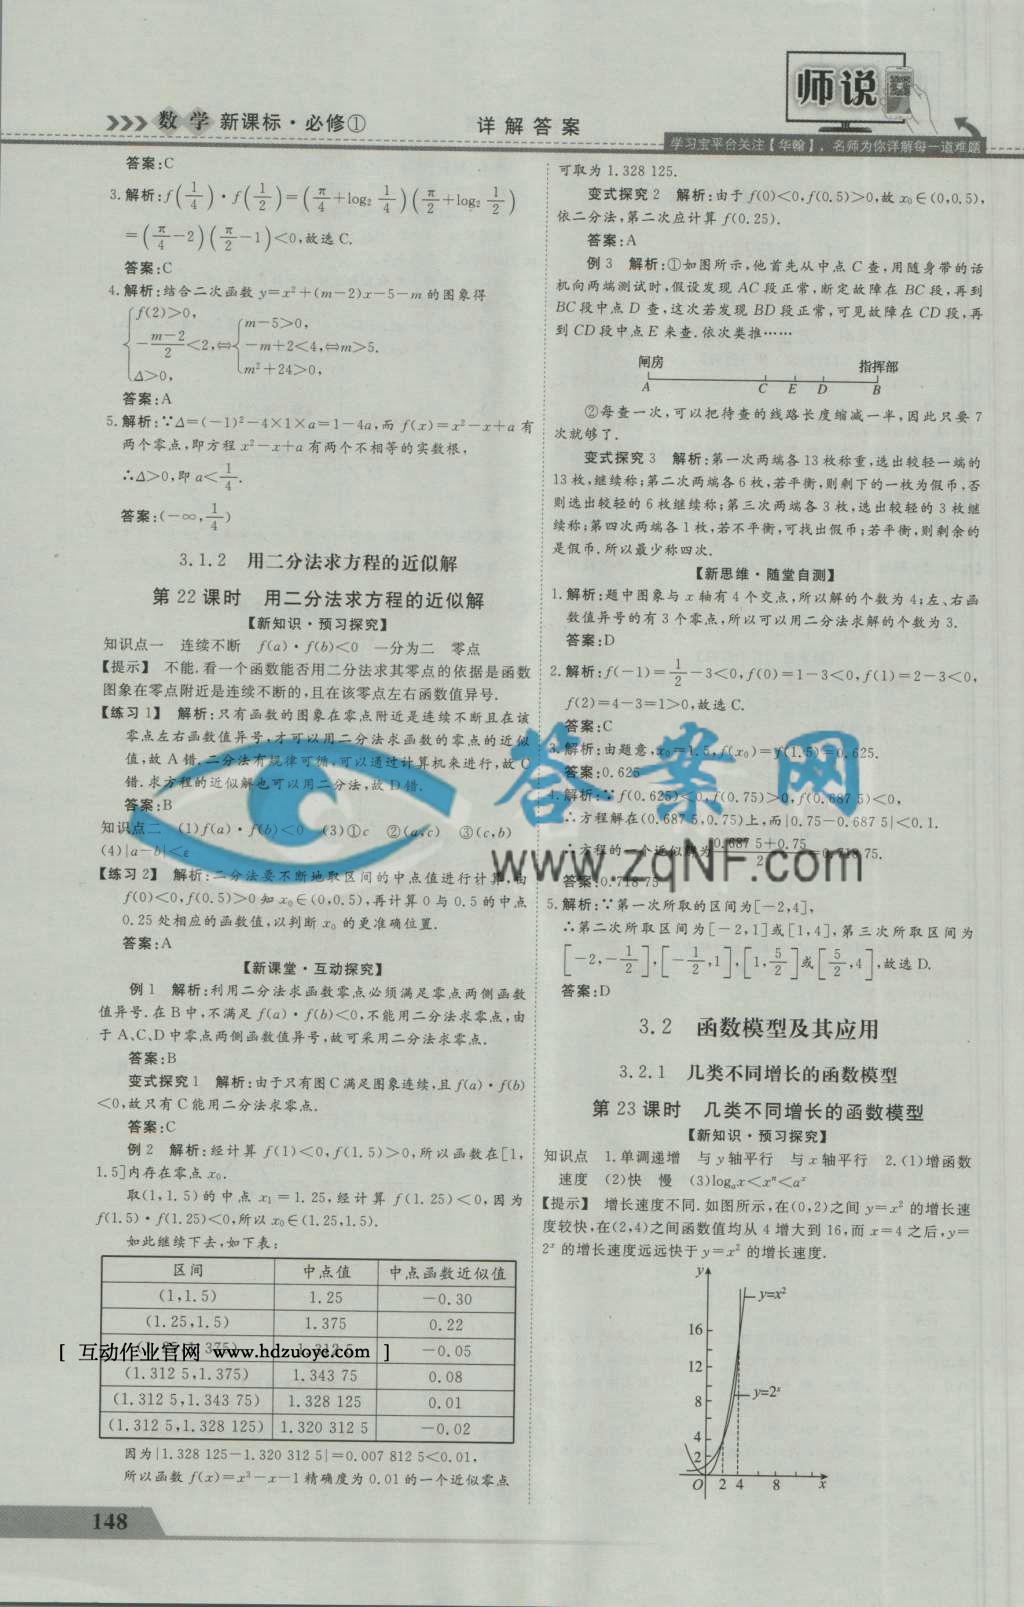 数学 新课标·必修①
详解答案
师说
学习宝平台关注【华翰】,名师为你详解每一道难题
答案:C
3.解析:f(1/4)·f(1/2)=(π/4+log₂1/4)(π/2+log₂1/2)
=(π/4-2)(π/2-1)<0,故选C.
答案:C
4.解析:结合二次函数 y=x²+(m-2)x-5-m 的图象得
{f(2)>0, -(m-2)/2<2, Δ>0, ⇔{m-5>0, -m+2<4, m²+24>0, ⇔m>5.
答案:A
5.解析:∵Δ=(-1)²-4×1×a=1-4a,而 f(x)=x²-x+a 有
两个零点,即方程 x²-x+a 有两个不相等的实数根,
∴Δ>0,即 a<1/4.
答案:(-∞,1/4)
3.1.2 用二分法求方程的近似解
第22课时 用二分法求方程的近似解
【新知识·预习探究】
知识点一 连续不断 f(a)·f(b)<0 一分为二 零点
【提示】 不能.看一个函数能否用二分法求其零点的依据是函数
图象在零点附近是连续不断的,且在该零点左右函数值异号.
【练习1】 解析:只有函数的图象在零点附近是连续不断且在该
零点左右函数值异号,才可以用二分法求函数的零点的近似
值,故A错.二分法有规律可循,可以通过计算机来进行,故C
错.求方程的近似解也可以用二分法,故D错.
答案:B
知识点二 (1)f(a)·f(b)<0 (3)①c ②(a,c) ③(c,b)
(4)|a-b|<ε
【练习2】 解析:二分法要不断地取区间的中点值进行计算,由
f(0)<0,f(0.5)>0知x₀∈(0,0.5),再计算0与0.5的中点
0.25处相应的函数值,以判断x₀的更准确位置.
答案:A
【新课堂·互动探究】
例1 解析:利用二分法求函数零点必须满足零点两侧函数
值异号.在B中,不满足 f(a)·f(b)<0,不能用二分法求零点,由
于A、C、D中零点两侧函数值异号,故可采用二分法求零点.
答案:B
变式探究1 解析:由于只有图C满足图象连续,且 f(a)·f(b)
<0,故只有C能用二分法求零点.
答案:C
例2 解析:经计算 f(1)<0,f(1.5)>0,所以函数在[1,
1.5]内存在零点x₀.
取(1,1.5)的中点x₁=1.25,经计算 f(1.25)<0,因为
f(1.5)·f(1.25)<0,所以x₀∈(1.25,1.5).
如此继续下去,如下表:
区间 中点值 中点函数近似值
(1,1.5) 1.25 -0.30
(1.25,1.5) 1.375 0.22
-0.05
(1.312 5,1.375) 1.343 75 0.08
(1.312 5,1.343 75) 1.328 125 0.01
(1.312 5,1.328 125) 1.320 312 5 -0.02
[ 互动作业官网 www.hdzuoye.com ]
因为|1.328 125-1.320 312 5|=0.007 812 5<0.01,
所以函数 f(x)=x³-x-1精确度为0.01的一个近似零点
148
可取为1.328 125.
变式探究2 解析:由于 f(0)<0,f(0.5)>0,故x₀∈(0,0.5),
依二分法,第二次应计算 f(0.25).
答案:A
例3 解析:①如图所示,他首先从中点C查,用随身带的话
机向两端测试时,假设发现AC段正常,断定故障在BC段,再到
BC段中点D查,这次若发现BD段正常,可见故障在CD段,再
到CD段中点E来查.依次类推……
闸房 指挥部
A C E D B
②每查一次,可以把待查的线路长度缩减一半,因此只要7
次就够了.
变式探究3 解析:第一次两端各13枚称重,选出较轻一端的
13枚,继续称;第二次两端各6枚,若平衡,则剩下的一枚为假币,否
则选出较轻的6枚继续称;第三次两端各3枚,选出较轻的3枚继
续称;第四次两端各1枚,若不平衡,可找出假币;若平衡,则剩余的
是假币.所以最少称四次.
【新思维·随堂自测】
1.解析:题中图象与x轴有4个交点,所以解的个数为4;左、右函
数值异号的有3个零点,所以可以用二分法求解的个数为3.
答案:D
2.解析:f(-1)=1/2-3<0,f(0)=1-3<0,f(1)=2-3<0,
f(2)=4-3=1>0,故选C.
答案:C
3.解析:由题意,x₀=1.5,f(x₀)=f(1.5)=0.625.
答案:0.625
4.解析:∵f(0.625)<0,f(0.75)>0,f(0.687 5)<0,
∴方程解在(0.687 5,0.75)上,而|0.75-0.687 5|<0.1.
∴方程的一个近似解为(0.687 5+0.75)/2=0.718 75.
答案:0.718 75
答案网
www.zqNF.com
5.解析:∵第一次所取的区间为[-2,4],
∴第二次所取区间为[-2,1]或[1,4],第三次所取区间为
[-2,-1/2],[-1/2,1],[1,5/2]或[5/2,4],故选D.
答案:D
3.2 函数模型及其应用
3.2.1 几类不同增长的函数模型
第23课时 几类不同增长的函数模型
【新知识·预习探究】
知识点 1.单调递增 与y轴平行 与x轴平行 2.(1)增函数
速度 (2)快 慢 (3)logₐx<xⁿ<aˣ
【提示】 增长速度不同.如图所示,在(0,2)之间 y=x² 的增长速
度较快,在(2,4)之间函数值均从4增大到16,而x=4之后,y=
2ˣ 的增长速度远远快于 y=x² 的增长速度.
y
y=x²
16
12
y=2ˣ
8
4
2
O 2 4 8 x